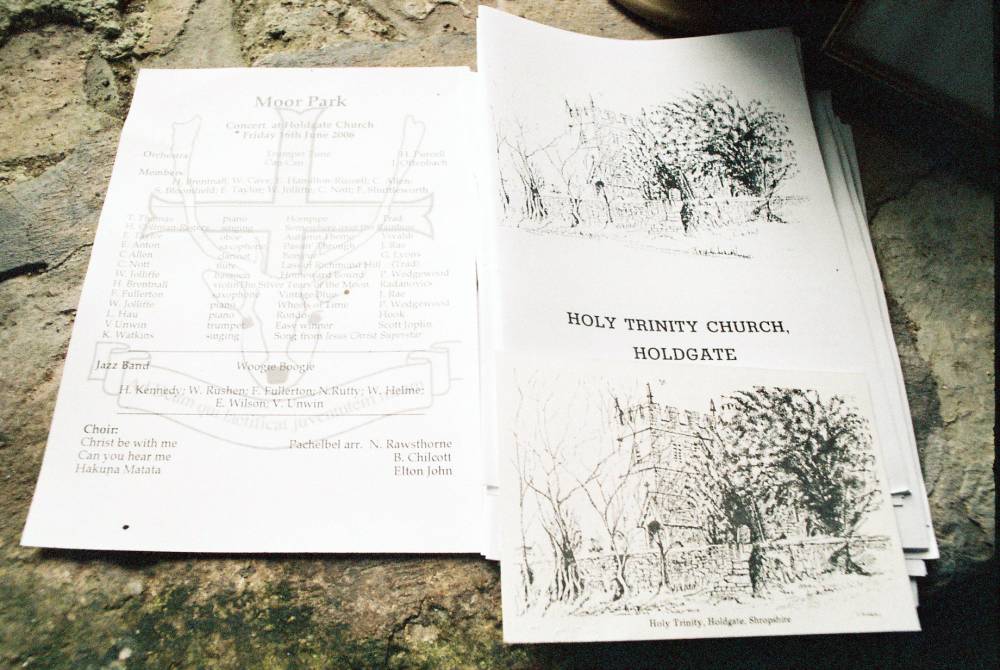 Moor Park
Concert at Holdgate Church
Friday 16th June 2006
Orchestra Trumpet Tune H. Purcell
Can Can J. Offenbach
Members
H. Brentnall; W. Cave; L. Hamilton-Russell; C. Allen;
S. Bloomfield; E. Taylor; W. Jolliffe; C. Nott; F. Shuttleworth
T. Thomas piano Hornpipe Trad
H. singing Somewhere over the Rainbow
E. Taylor oboe Autumn Theme Vivaldi
E. Anton saxophone Passin' Through J. Rae
C Allen clarinet G. Lyons
C. Nott flute Lass of Richmond Hill (Trad)
W. Jolliffe bassoon Homeward Bound P. Wedgewood
H. Brentnall violin The Silver Tears of the Moon Radanovics
F. Fullerton saxophone Vintage Blue J. Rae
W. Jolliffe piano Wheels of Time P. Wedgewood
L. Hau piano Rondo Hook
V Unwin trumpet Easy winner Scott Joplin
K. Watkins singing Song from Jesus Christ Superstar
Jazz Band Woogie Boogie
H. Kennedy; W. Rushen; E. Fullerton; N.Rutty; W. Helme;
E. Wilson; V. Unwin
Choir:
Christ be with me Pachelbel arr. N. Rawsthorne
Can you hear me B. Chilcott
Hakuna Matata Elton John
HOLY TRINITY CHURCH,
HOLDGATE
Holy Trinity, Holdgate, Shropshire